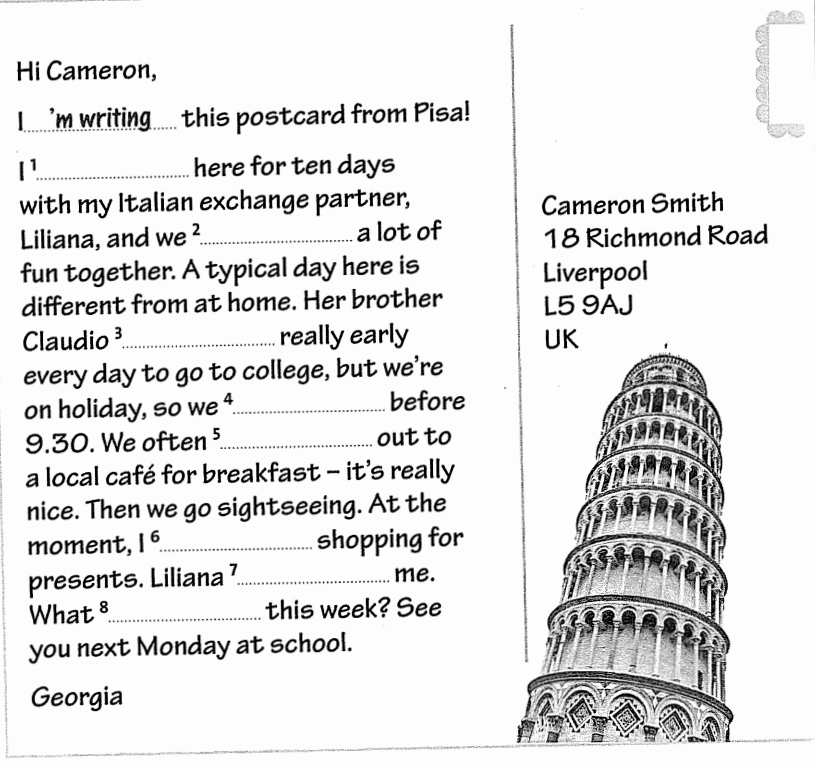 Hi Cameron,
I 'm writing this postcard from Pisa!
I 1 here for ten days
with my Italian exchange partner,
Liliana, and we 2 a lot of
fun together. A typical day here is
different from at home. Her brother
Claudio 3 really early
every day to go to college, but we're
on holiday, so we 4 before
9.30. We often 5 out to
a local café for breakfast – it's really
nice. Then we go sightseeing. At the
moment, I 6 shopping for
presents. Liliana 7 me.
What 8 this week? See
you next Monday at school.
Georgia
Cameron Smith
18 Richmond Road
Liverpool
L5 9AJ
UK